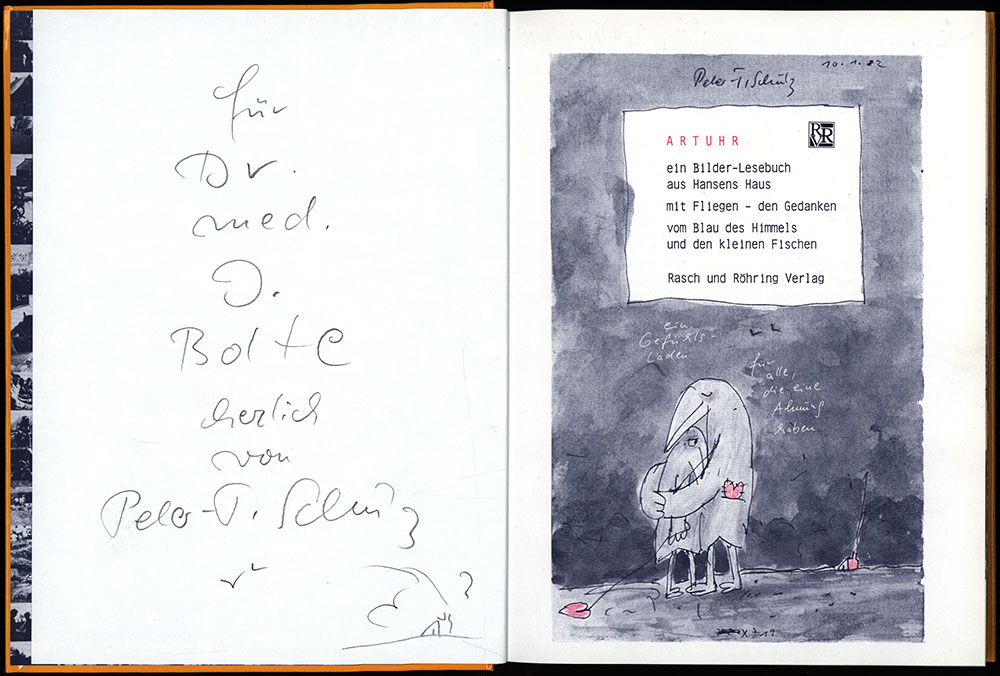 für
Dr.
med.
D.
Bolte
herlich
von
Peter-T. Schulz
Peter-T. Schulz
10.1.82
ARTUHR
RRV
ein Bilder-Lesebuch
aus Hansens Haus
mit Fliegen - den Gedanken
vom Blau des Himmels
und den kleinen Fischen
Rasch und Röhring Verlag
ein
Gefühls-
Laden
für
alle,
die eine
Ahnung
haben